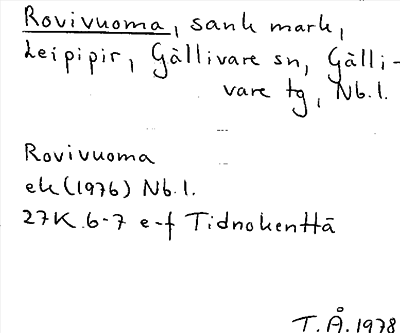 Rovivuoma, sank mark,
Leipipir, Gällivare sn, Gälli-
vare tg, Nb.l.
Rovivuoma
ek (1976) Nb.l.
27K.6-7 e-f Tidnokenttä
T.Å.1978